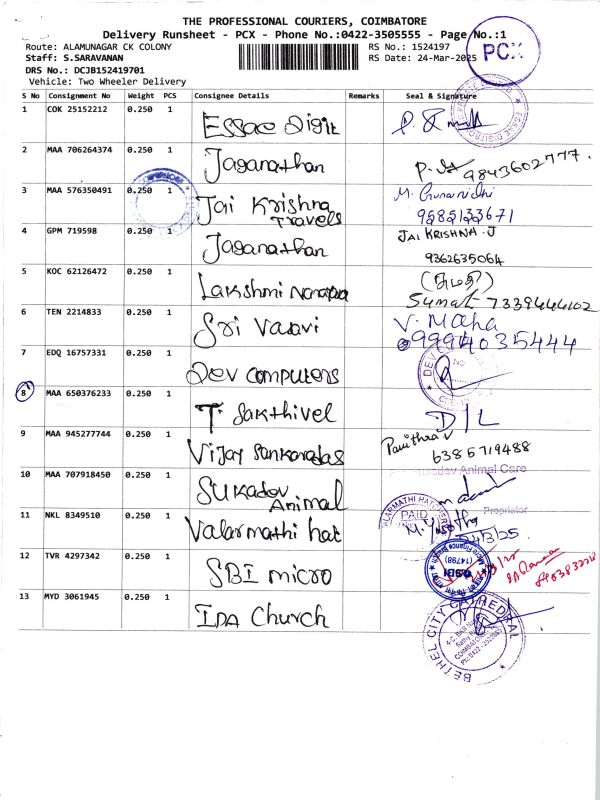 THE PROFESSIONAL COURIERS, COIMBATORE
Delivery Runsheet - PCX - Phone No.:0422-3505555 - Page No.:1
PCX
Route: ALAMUNAGAR CK COLONY RS No.: 1524197
Staff: S.SARAVANAN RS Date: 24-Mar-2025
DRS No.: DCJB152419701
Vehicle: Two Wheeler Delivery
S No Consignment No Weight PCS Consignee Details Remarks Seal & Signature
1 COK 25152212 0.250 1 Essae Digit
2 MAA 706264374 0.250 1 Jaganathan 9843602777.
3 MAA 576350491 0.250 1 Jai Krishna Travels M. Gunanidhi
9585133671
4 GPM 719598 0.250 1 Jaganathan JAI KRISHNA. J
9362635064
5 KOC 62126472 0.250 1 Lakshmi Narayana
Sumati 7339444102
6 TEN 2214833 0.250 1 Sri Vasavi V. Maha
9994035444
7 EDQ 16757331 0.250 1 Dev computers
8 MAA 650376233 0.250 1 T. Sakthivel D/L
9 MAA 945277744 0.250 1 Vijay Sankaradas Pavithra V
6385719488
10 MAA 707918450 0.250 1 Sukadev Animal
Sukadev Animal Care
Proprietor
11 NKL 8349510 0.250 1 Valarmathi hat
VALARMATHI HATCHERIES
PAID
M. Yasotha
24/3/25
12 TVR 4297342 0.250 1 SBI micro
SBI
(14798)
13 MYD 3061945 0.250 1 IDA Church
BETHEL CITY CATHEDRAL